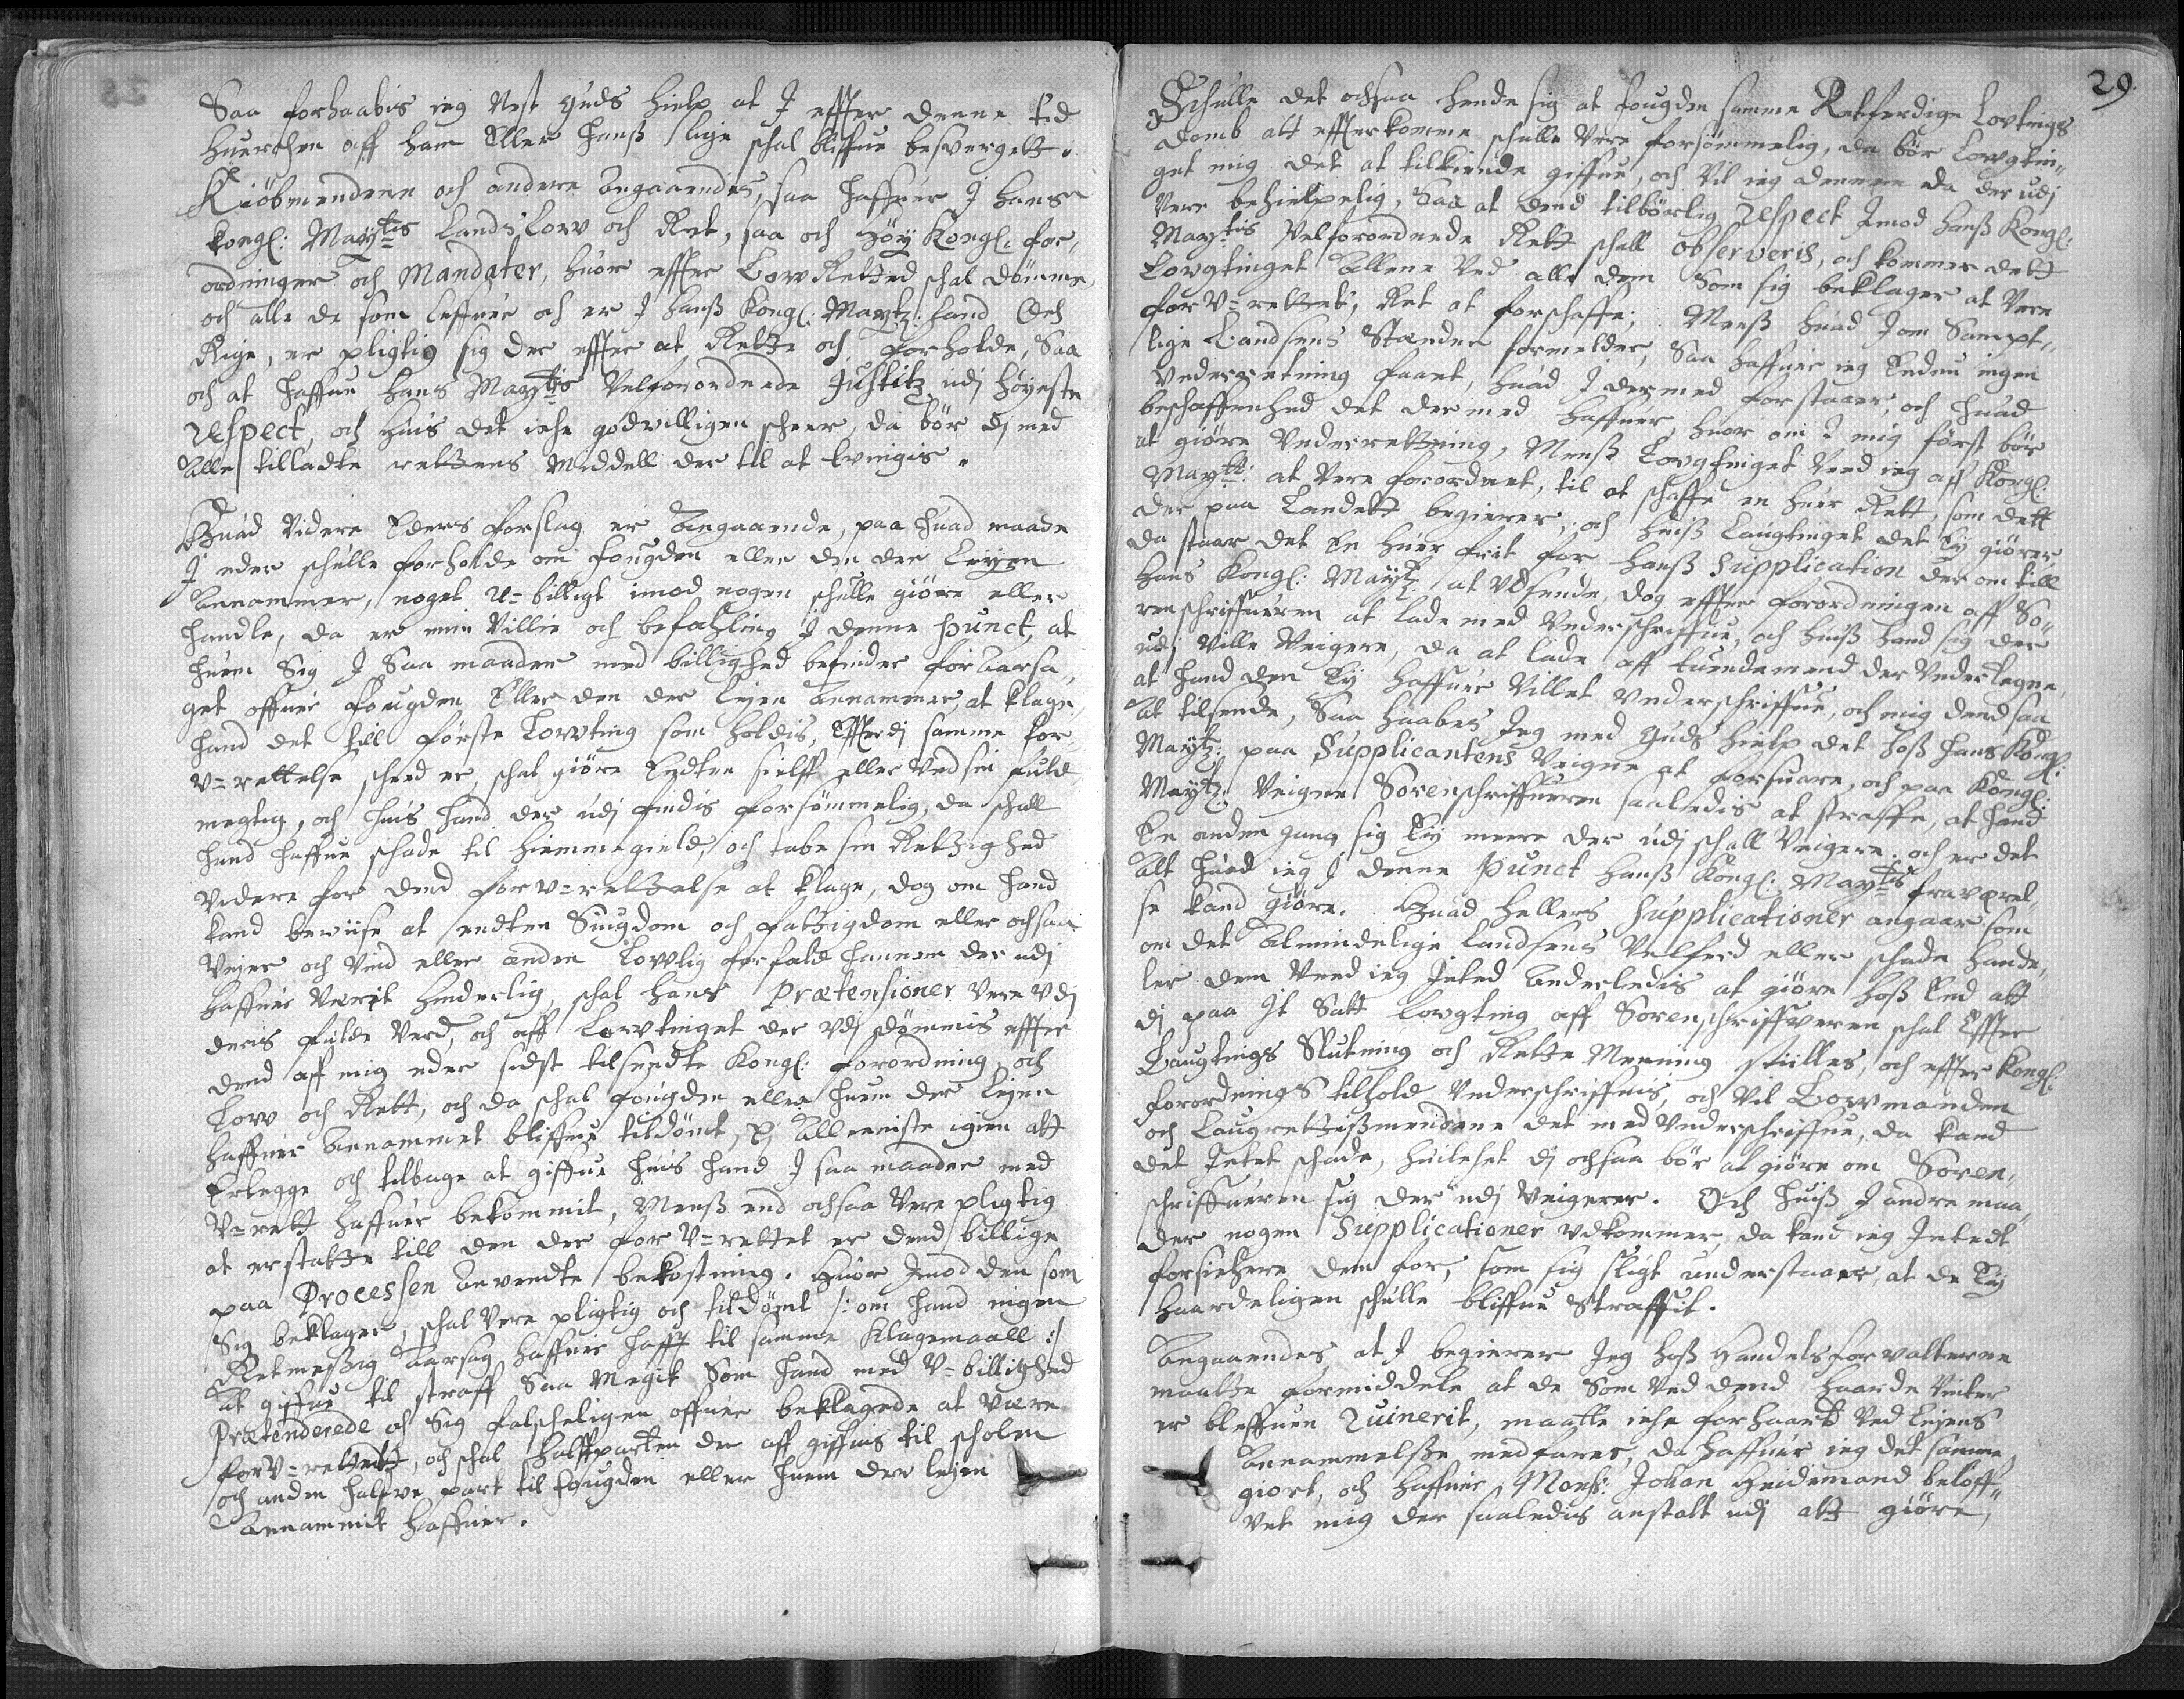 Saa forhaabis ieg Nest Guds hielp at J effter denne tid
huerchen aff ham Eller hanß lige schal bliffue besverget.
Kiöbmendene och andere Angaaendes, saa haffuer J hans
kongl: Maytis Lands Low och Ret, saa och Höy Kongl. for-
ordninger och Mandater, huor effter LowRetted schal dömme,
och alle de som leffuer och er J hanß Kongl: Maytz: Land Och
Rige, er pligtig sig der effter at Rette och forholde, Saa
och at haffue hans Maytis Velforordnede Justitz udj höyeste
respect, och huis det iche godvilligen scheer, da bör dj med
Alle tilladte rettens Middell der til at tvingis.
Huad Videre Eders forslag er Angaaende, paa huad maade
J eder schulle forholde om fougden eller den der Leyen
Annammer, noget u-billigt imod nogen schulle giöre eller
handle, da er min Villie och befahling J denne punct, at
huem Sig J Saa maader med billighed befinder foraarsa,
get offuer fougden Eller den der Leyen Annammer, at klage,
hand det till förste Lowting som holdis, Effterdj samme for-
v-rettelse scheed er, schal giöre Endten sielff eller Ved sin fuld-
megtig, och huis hand der udj findis forsömmelig, da schall
hand haffue schade til hiemmegield, och tabe sin Retzighed
videre for dend forv-rettelse at klage, dog om hand
kand beviise at endten Siugdom och fattigdom eller ochsaa
Veyer och Vind eller anden Lowlig forfald hannem der udj
haffuer Værit hinderlig, schal hans Prætensioner Vere Vdj
deris fulde Verd, och aff Lowtinget der vdj dömmis effter
dend aff mig eder sidst tilsendte Kongl: forordning och
Low och Rett, och da schal fougden eller huem der Lejen
haffuer Annammet bliffue tildömt, Ej Alleeniste igien att
Erlegge och tilbage at giffue huis hand J saa maader med
V-rett haffuer bekommit, Menß end ochsaa Vere pligtig
at erstatte till den der forV-rettet er dend billige
paa Processen Anvendte bekostning. Huor Jmod den som
Sig beklager, schal Vere pligtig och tildömt /: om hand ingen
Retmeßig Aarsag haffuer hafft til samme Klagemaall :/
At giffue til straff Saa Megit Som hand med V-billighed
Prætenderede och Sig falscheligen offuer beklagede at være
forV-rettett, och schal halffparten der aff giffuis til scholen
och anden halfve part til fougden eller huem der lejen
Annammit haffuer.
29.
Schulle det ochsaa hende sig at fougden samme Retferdige Lovtings
domb att effterkomme schulle Vere forsömmelig, da bör Lowgtin-
get mig det at tilkiende giffue, och Vil ieg dennem da der udj
Vere behielpelig, Saa at dend tilbörlig respect Jmod hanß Kongl:
Maytis Velforordnede Rett schall observeris, och kommer dett
Lovgtinget Allene Ved alle dem Som sig beklager at Vere
forV-rettet, Ret at forschaffe; Menß huad J om Sampt-
lige Landsens Stænder formelder, Saa haffuer ieg Endnu ingen
Vnderretning faaet, huad J dermed forstaaer, och huad
beschaffenhed det dermed haffuer, huor om J mig först bör
at giöre Vnderretning, Menß Lovgtinget Veed ieg aff Kongl:
Maytt: at Vere forordnet, til at schaffe en huer Rett, som dett
der paa Landett begierer; och huiß Laugtinget det Ey giörer,
da staar det En huer frit for hanß Supplication der om till
Hans Kongl: Maytz: at Vdsende, dog effter forordningen aff So-
renschriffueren at lade med Vnderschriffue, och huiß hand sig der
udj Ville Veigere, da at lade aff tuendemend der Vndertegne,
at hand den Ey haffuer Villet Vnderschriffue, och mig dend saa
At tilsende, Saa haabes Jeg med Guds hielp det hoß Hans Kongl:
Maytz: paa Supplicantens Veigne at forsuare, och paa Kongl:
Maytz: Veigne Sorenschriffueren saaledis at straffe, at hand
En anden gang sig Ey meere der udj schall Veigere. och er det
Alt huad ieg J denne Punct Hanß Kongl: Maytis fraværel-
se kand giöre. Huad hellers Supplicationer angaar som
om det Almindelige Landsens Velferd eller schade hande-
ler dem Veed ieg Jnted Anderledis at giöre hoß End att
dj paa It Satt Lovgting aff Sorenschriffveren schal Effter
Laugtings Slutning och Rette Meening stilles, och effter Kongl:
forordnings tilhold Vnderschriffuis, och Vil Lowmanden
och Laugrettismendene det med Vnderschriffue, da kand
det Intet schade, huilchet dj ochsaa bör at giöre om Soren-
schriffueren sig der udj Veigerer. Och huiß J andre maa-
der nogen Supplicationer vdkommer, da kand ieg Intedt
forsichere dem for, som sig sligt understaaer, at de Ey
haardeligen schulle bliffue Straffit.
Angaaendes at J begierer Jeg hoß Handelsforvalterne
maatte formiddele at de Som Ved dend haarde Vinter
er bleffuen ruinerit, maatte iche forhaardt Ved Lejens
Annammelsse medfares, da haffuer ieg det samme
giort, och haffuer Mons: Johan Heidemand beloff-
vet mig der saaledis anstalt udj att giöre,